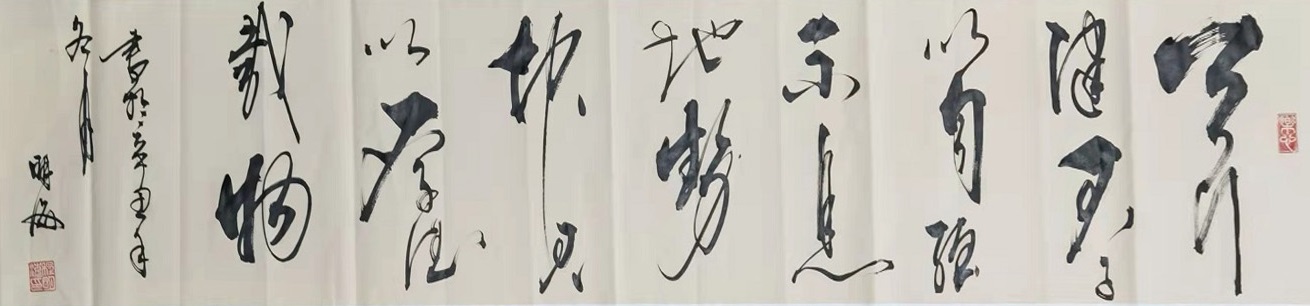 天行
健君子
以自强
不息
地勢
坤君子
以厚德
載物
書於辛丑年
冬月
明海